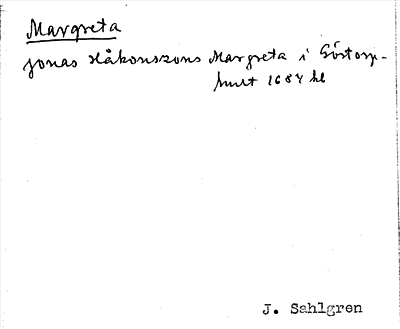 Margreta
Jonas Håkonszons Margreta i
hult 1684 hl
J. Sahlgren